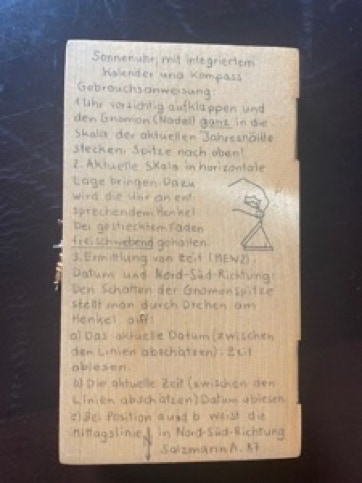 Sonnenuhr, mit integriertem
Kalender und Kompass
Gebrauchsanweisung:
1. Uhr vorsichtig aufklappen und
den Gnomon (Nadel) ganz in die
Skala der aktuellen Jahreshälfte
stecken. Spitze nach oben!
2. Aktuelle Skala in horizontale
Lage bringen. Dazu
wird die Uhr an ent-
sprechendem Henkel
bei gestrecktem Faden
freischwebend gehalten.
3. Ermittlung von Zeit (MEWZ);
Datum und Nord-Süd-Richtung:
Den Schatten der Gnomonspitze
stellt man durch Drehen am
Henkel auf:
a) Das aktuelle Datum (zwischen
den Linien abschätzen): Zeit
ablesen.
b) Die aktuelle Zeit (zwischen den
Linien abschätzen) Datum ablesen
c) Bei Position a und b weist die
Mittagslinie in Nord-Süd-Richtung
N
Salzmann A. 87